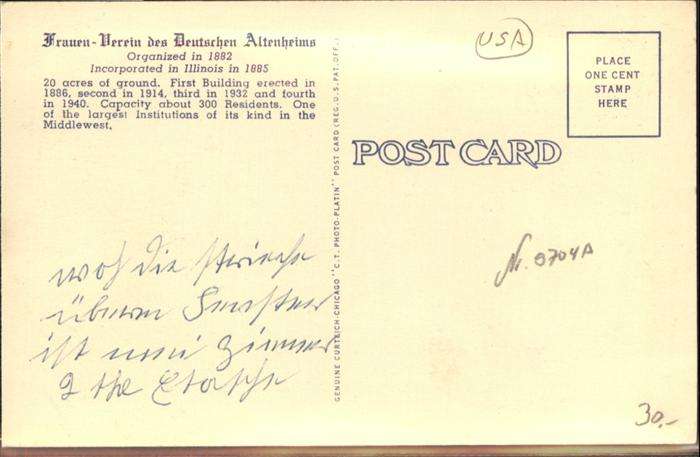 Frauen-Verein des Deutschen Altenheims
Organized in 1882
Incorporated in Illinois in 1885
20 acres of ground. First Building erected in
1886, second in 1914, third in 1932 and fourth
in 1940. Capacity about 300 Residents. One
of the largest Institutions of its kind in the
Middlewest.
wo die Striche
übern Fenster
ist mei Zimmer
2 the Etasche
GENUINE CURTEICH-CHICAGO "C.T. PHOTO-PLATIN" POST CARD (REG. U.S. PAT. OFF.)
USA
PLACE
ONE CENT
STAMP
HERE
POST CARD
Nr. 9704A
30.-